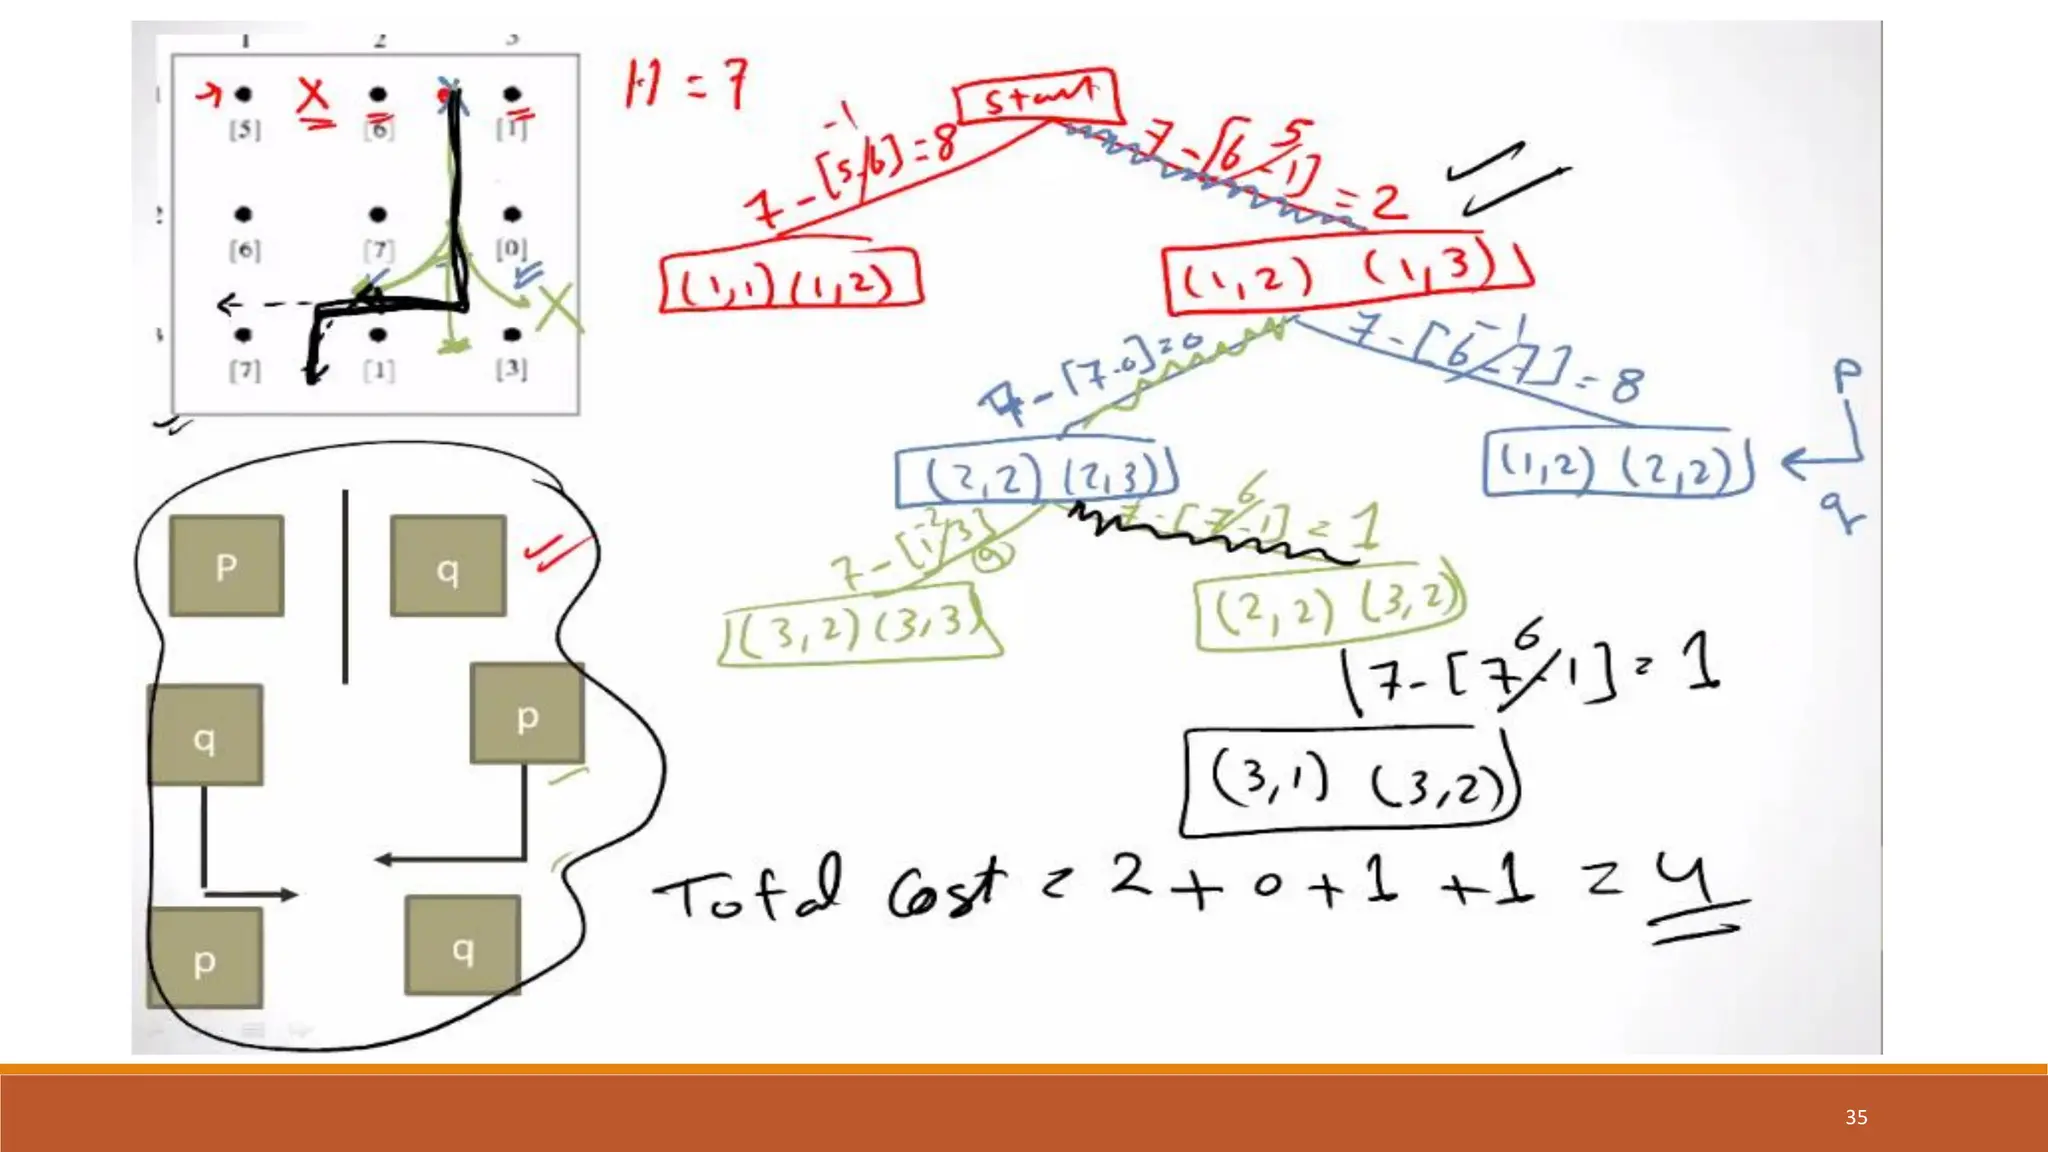 1 2 3
[5] [6] [1]
2
[6] [7] [0]
3
[7] [1] [3]
H = 7
start
7 - [5-6] = 8
-1
7 - [6-1] = 2
5
(1,1) (1,2)
(1,2) (1,3)
7 - [7-0] = 0
7 - [6-7] = 8
-1
(2,2) (2,3)
(1,2) (2,2)
p
q
7 - [1-3]
-2
9
7 - [7-1] = 1
6
(3,2) (3,3)
(2,2) (3,2)
7 - [7-1] = 1
6
(3,1) (3,2)
Total Cost = 2 + 0 + 1 + 1 = 4
P q
q p
p q
35